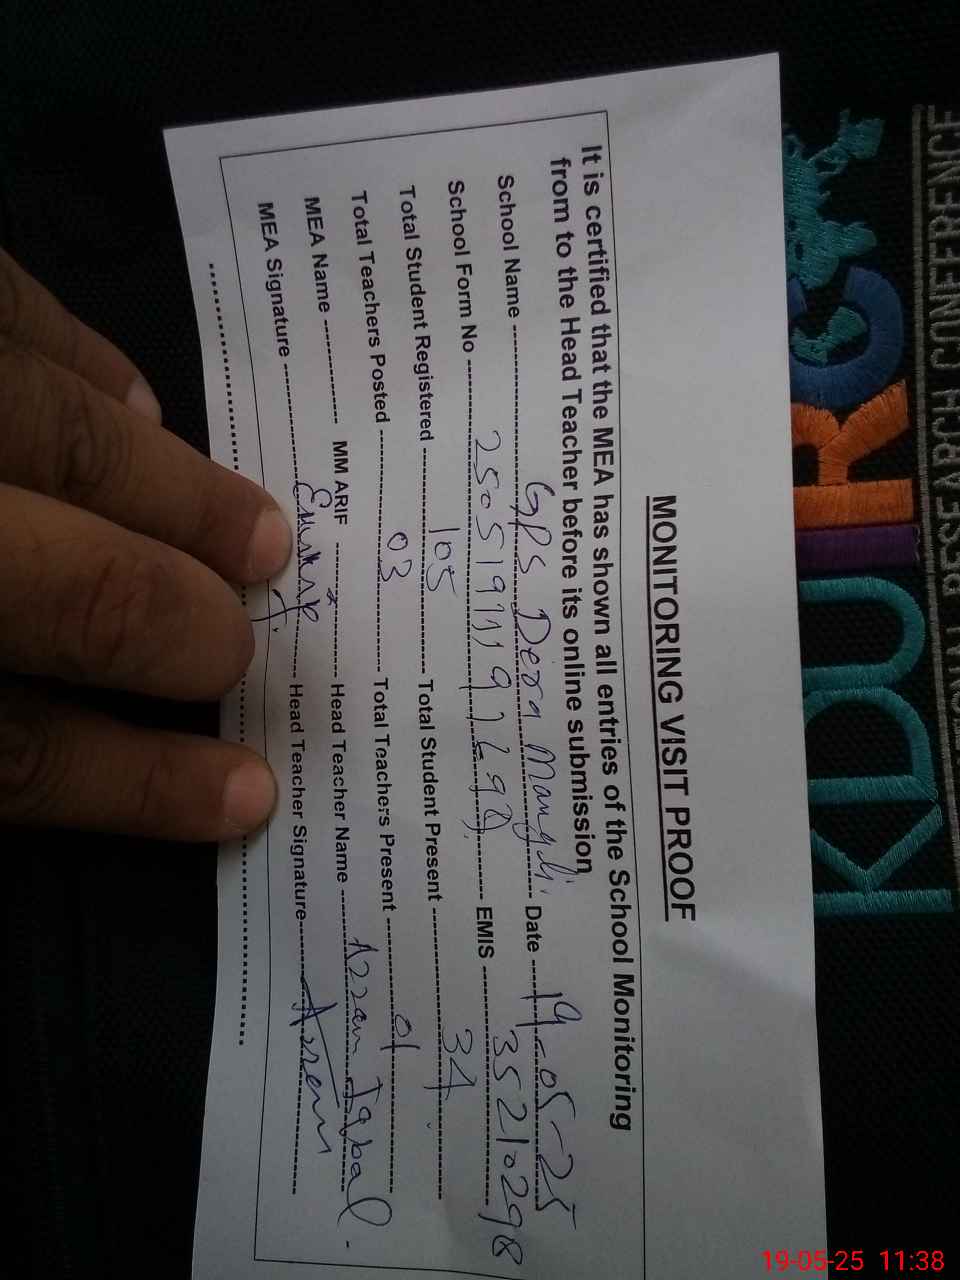 MONITORING VISIT PROOF
It is certified that the MEA has shown all entries of the School Monitoring
from to the Head Teacher before its online submission
School Name GPS Dera Mangli. Date 19-05-25
School Form No EMIS 35210298
Total Student Registered 105 Total Student Present 34
Total Teachers Posted 03 Total Teachers Present 01
MEA Name MM ARIF Head Teacher Name Azram Iqbal
MEA Signature Head Teacher Signature Azram
KDU IRC
RESEARCH CONFERENCE
19-05-25 11:38